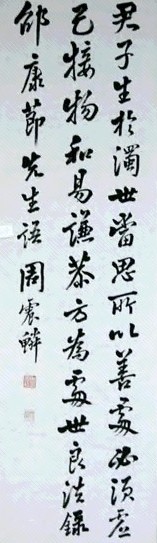 君子生於濁世當思所以善處必須虛
己接物和易謙恭方為處世良法錄
邵康節先生語周震鱗